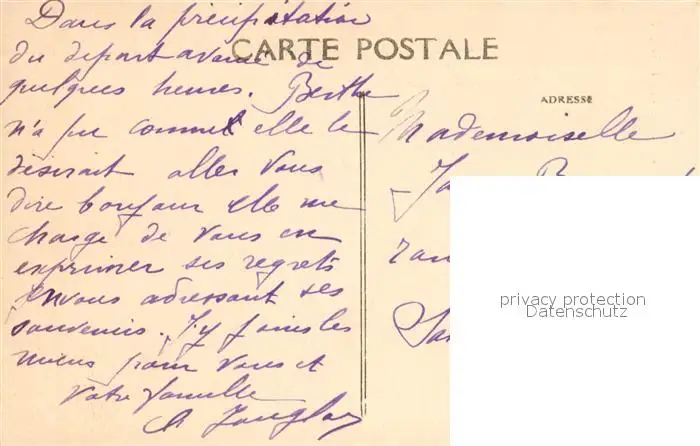 Dans la précipitation
du depart avancé de
quelques heures. Berthe
n'a pu comme elle le
désirait aller vous
dire bonjour elle me
charge de vous en
exprimer ses regrets
en vous adressant ses
souvenirs. J'y joins les
miens pour vous et
votre famille
CARTE POSTALE
ADRESSE
Mademoiselle
privacy protection
Datenschutz